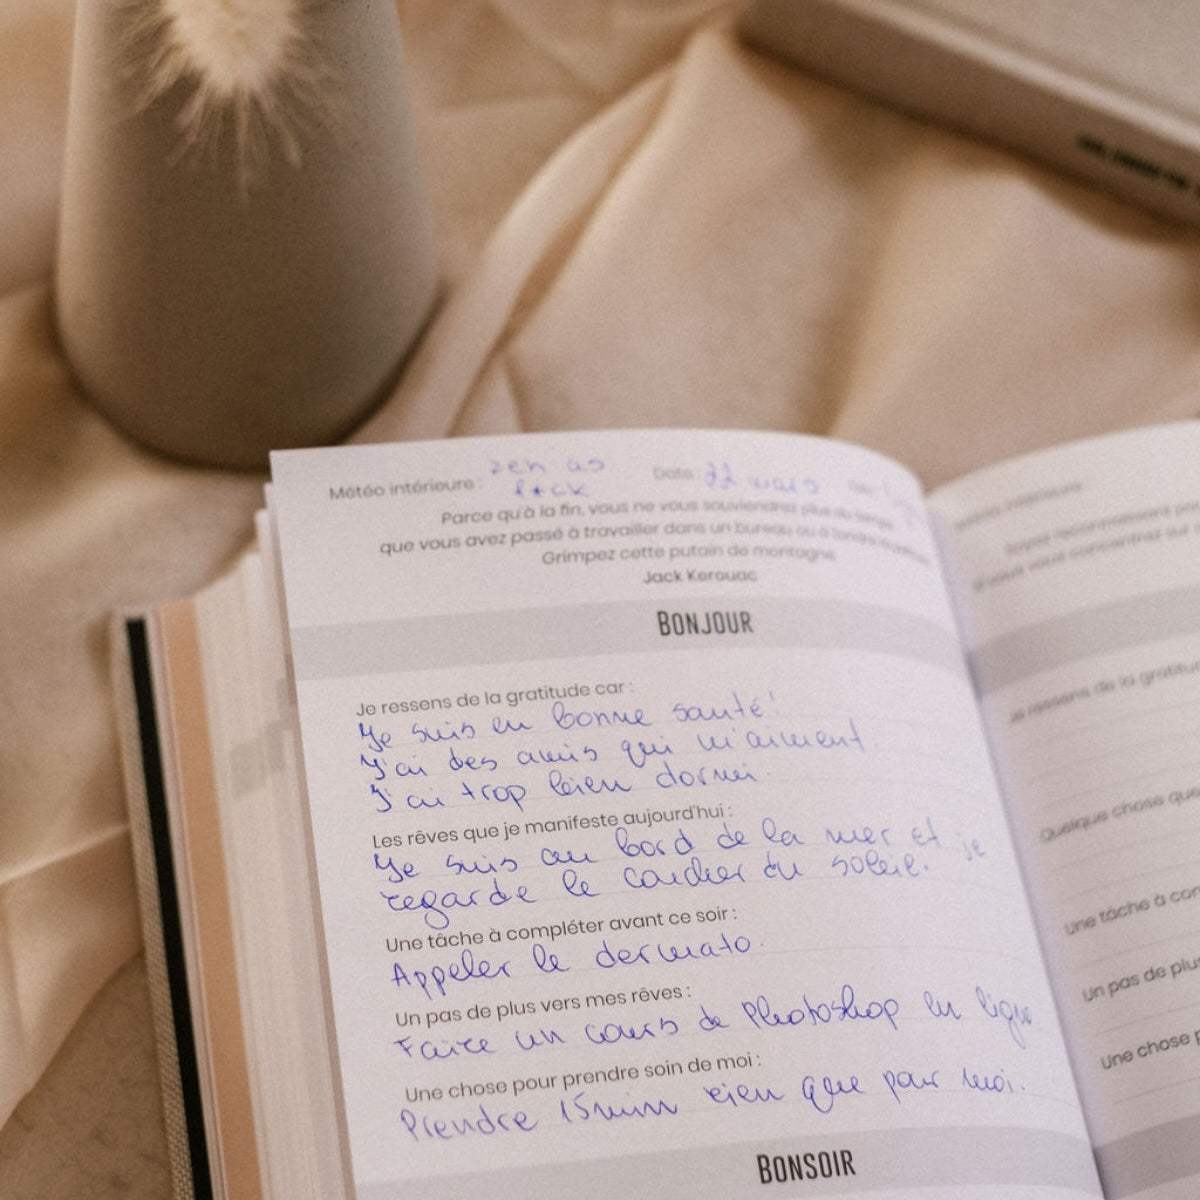 Météo intérieure : zen as Date : 22 mars
f*ck
Parce qu'à la fin, vous ne vous souviendrez plus du temps
que vous avez passé à travailler dans un bureau ou à tondre
Grimpez cette putain de montagne
Jack Kerouac
BONJOUR
Je ressens de la gratitude car :
Je suis en bonne santé!
J'ai des amis qui m'aiment.
J'ai trop bien dormi.
Les rêves que je manifeste aujourd'hui :
Je suis au bord de la mer et je
regarde le coucher du soleil.
Une tâche à compléter avant ce soir :
Appeler le dermato.
Un pas de plus vers mes rêves :
Faire un cours de Photoshop en ligne
Une chose pour prendre soin de moi :
Prendre 15 min rien que pour moi.
BONSOIR
Je ressens de la gratitude
Quelque chose que
Une tâche à
Un pas de plus
Une chose